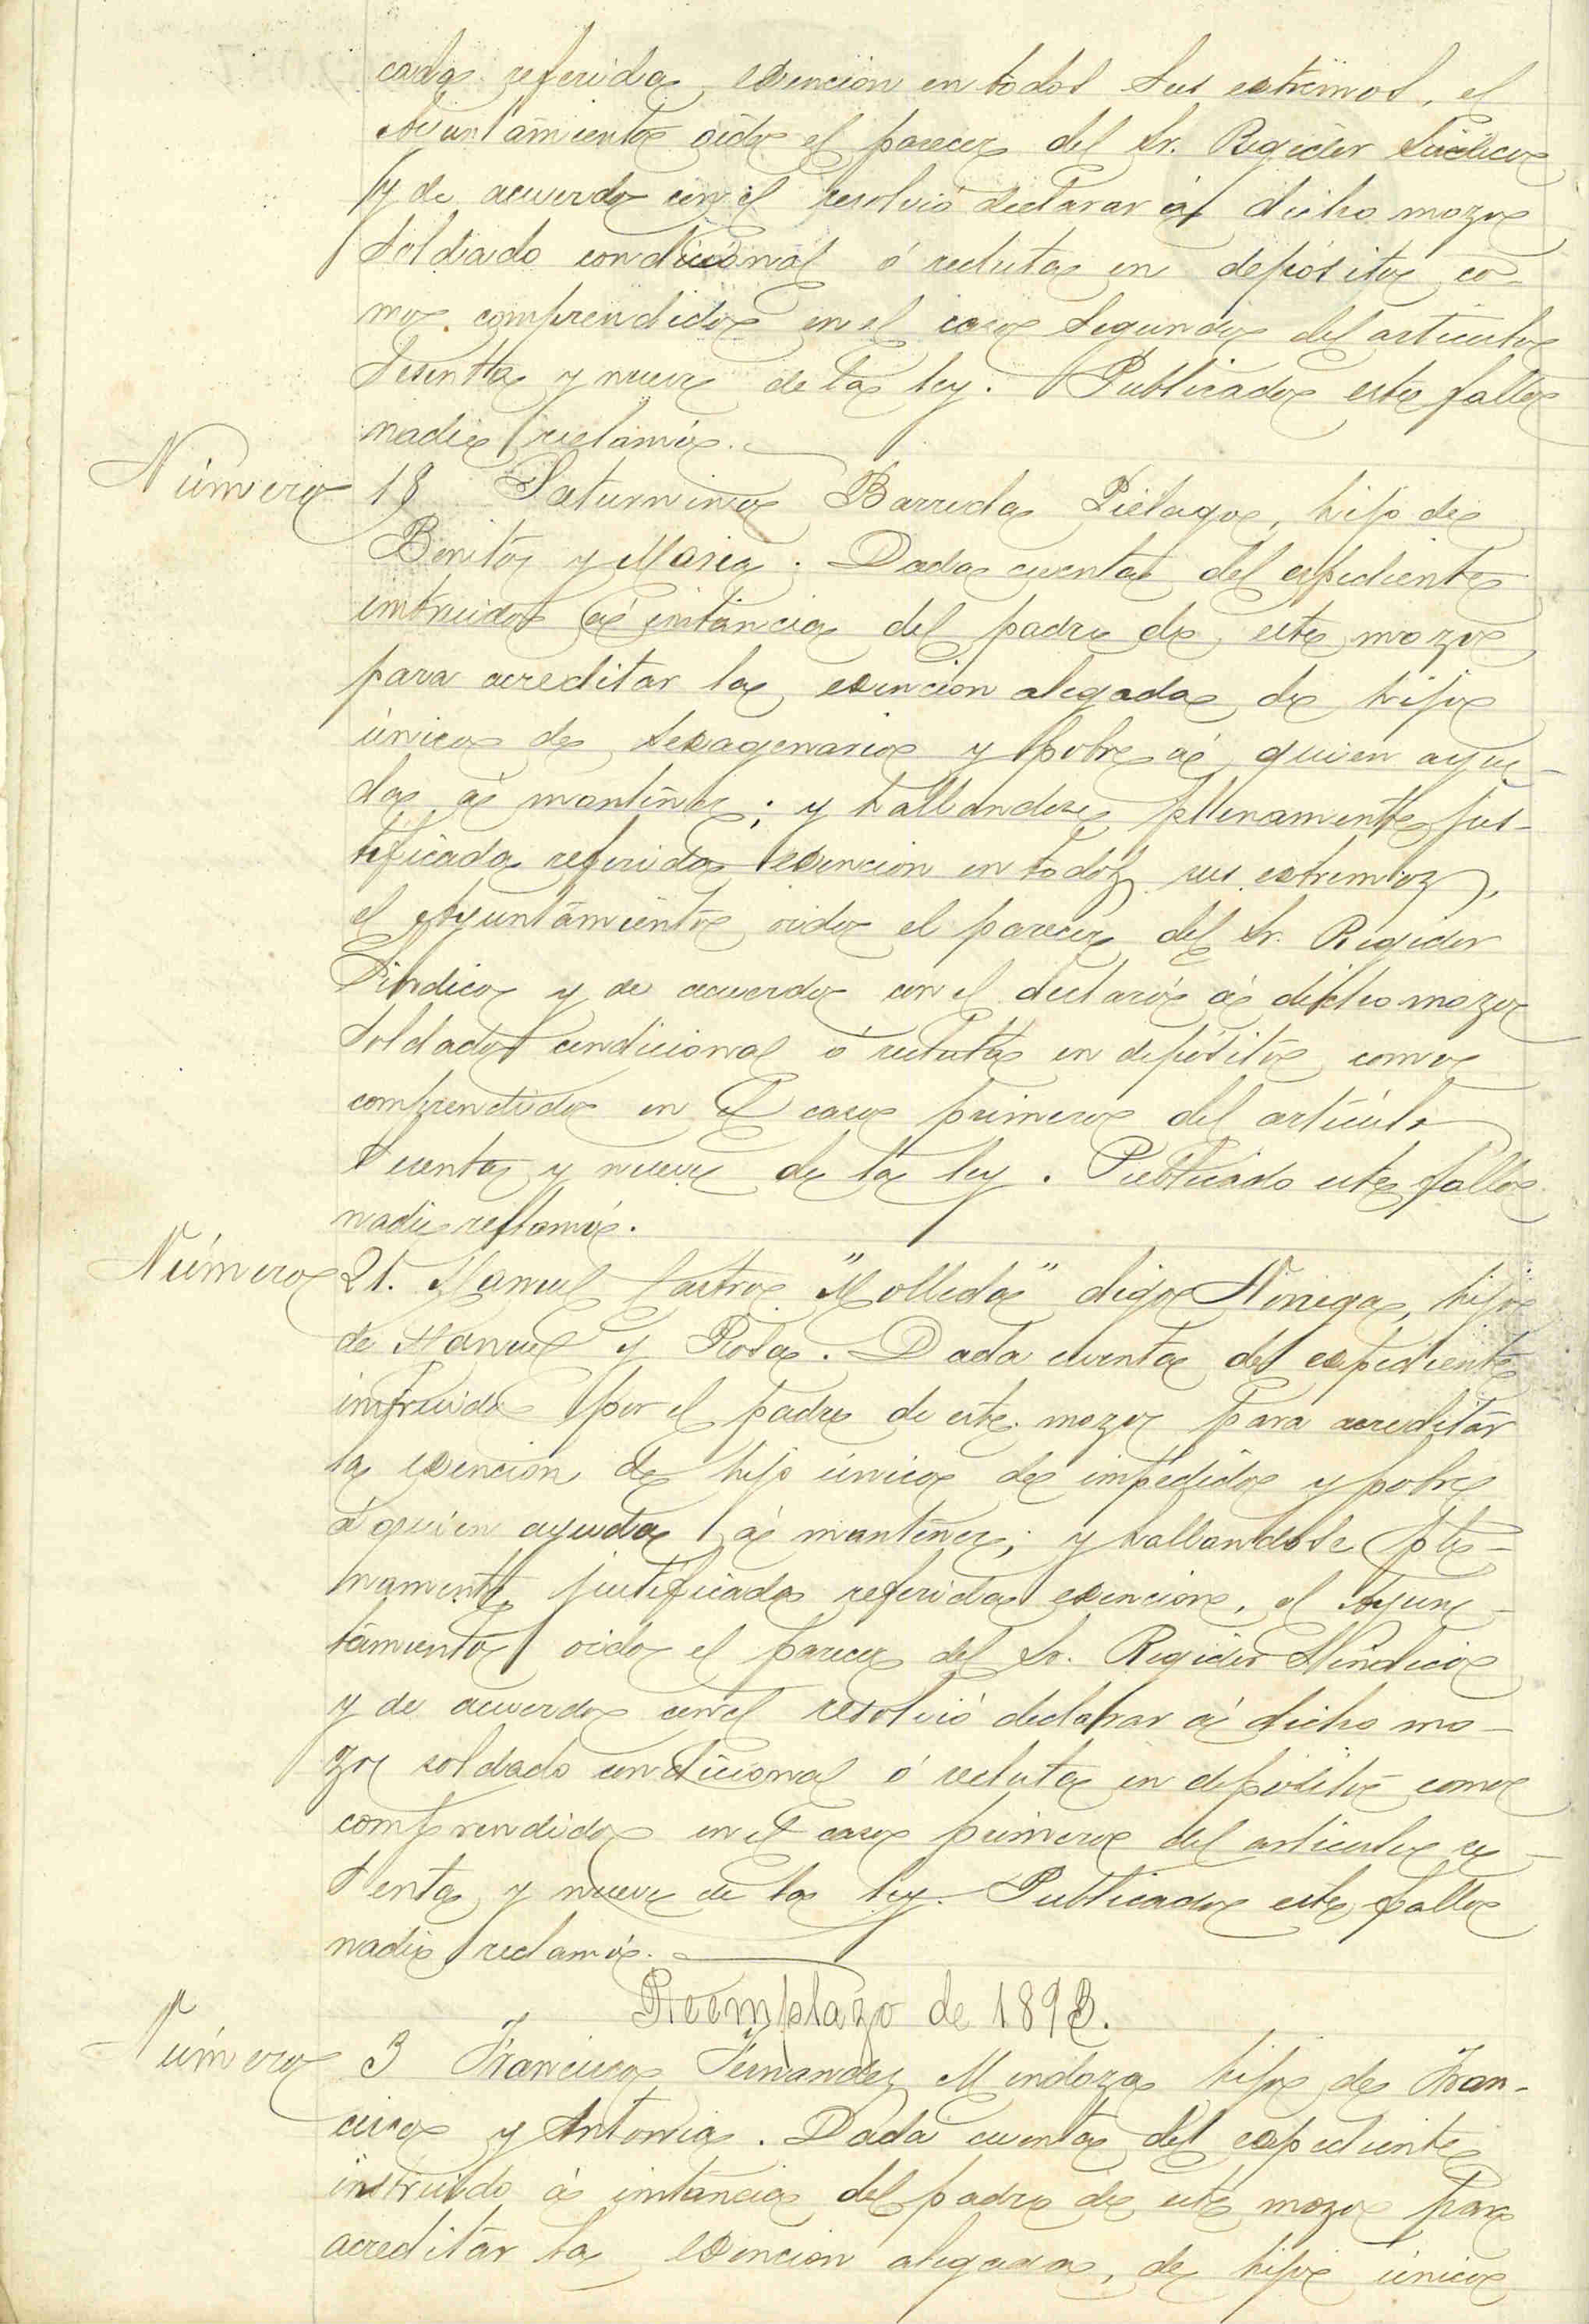 cada referida exención en todos sus extremos, el
Ayuntamiento oido el parecer del Sr. Regidor Sindico
y de acuerdo con el resolvió declarar á dicho mozo
soldado condicional ó recluta en depósito co-
mo comprendido en el caso segundo del articulo
sesenta y nueve de la ley. Publicado este fallo
nadie reclamó.
Número 18 Saturnino Barreda Piélago, hijo de
Benito y Maria. Dada cuenta del expediente
instruido á instancia del padre de este mozo
para acreditar la exencion alegada de hijo
único de sexagenario y pobre á quien ayu-
da á mantener; y hallandose plenamente jus-
tificada referida exencion en todos sus extremos,
el Ayuntamiento oido el parecer del Sr. Regidor
Sindico y de acuerdo con el declaró á dicho mozo
soldado condicional ó recluta en depósito como
comprendido en el caso primero del artículo
sesenta y nueve de la ley. Publicado este fallo
nadie reclamó.
Número 21. Manuel Castro "Molleda" digo Noriega, hijo
de Manuel y Rosa. Dada cuenta del expediente
instruido por el padre de este mozo para acreditar
la exencion de hijo único de impedido y pobre
á quien ayuda á mantener; y hallandose ple-
namente justificada referida exencion, el Ayun-
tamiento oido el parecer del Sr. Regidor Sindico
y de acuerdo con el resolvió declarar á dicho mo-
zo soldado condicional ó recluta en depósito como
comprendido en el caso primero del articulo se-
senta y nueve de la ley. Publicado este fallo
nadie reclamó.
Reemplazo de 1893.
Número 3 Francisco Fernandez Mendoza hijo de Fran-
cisco y Antonia. Dada cuenta del expediente
instruido á instancia del padre de este mozo para
acreditar la exencion alegada, de hijo único